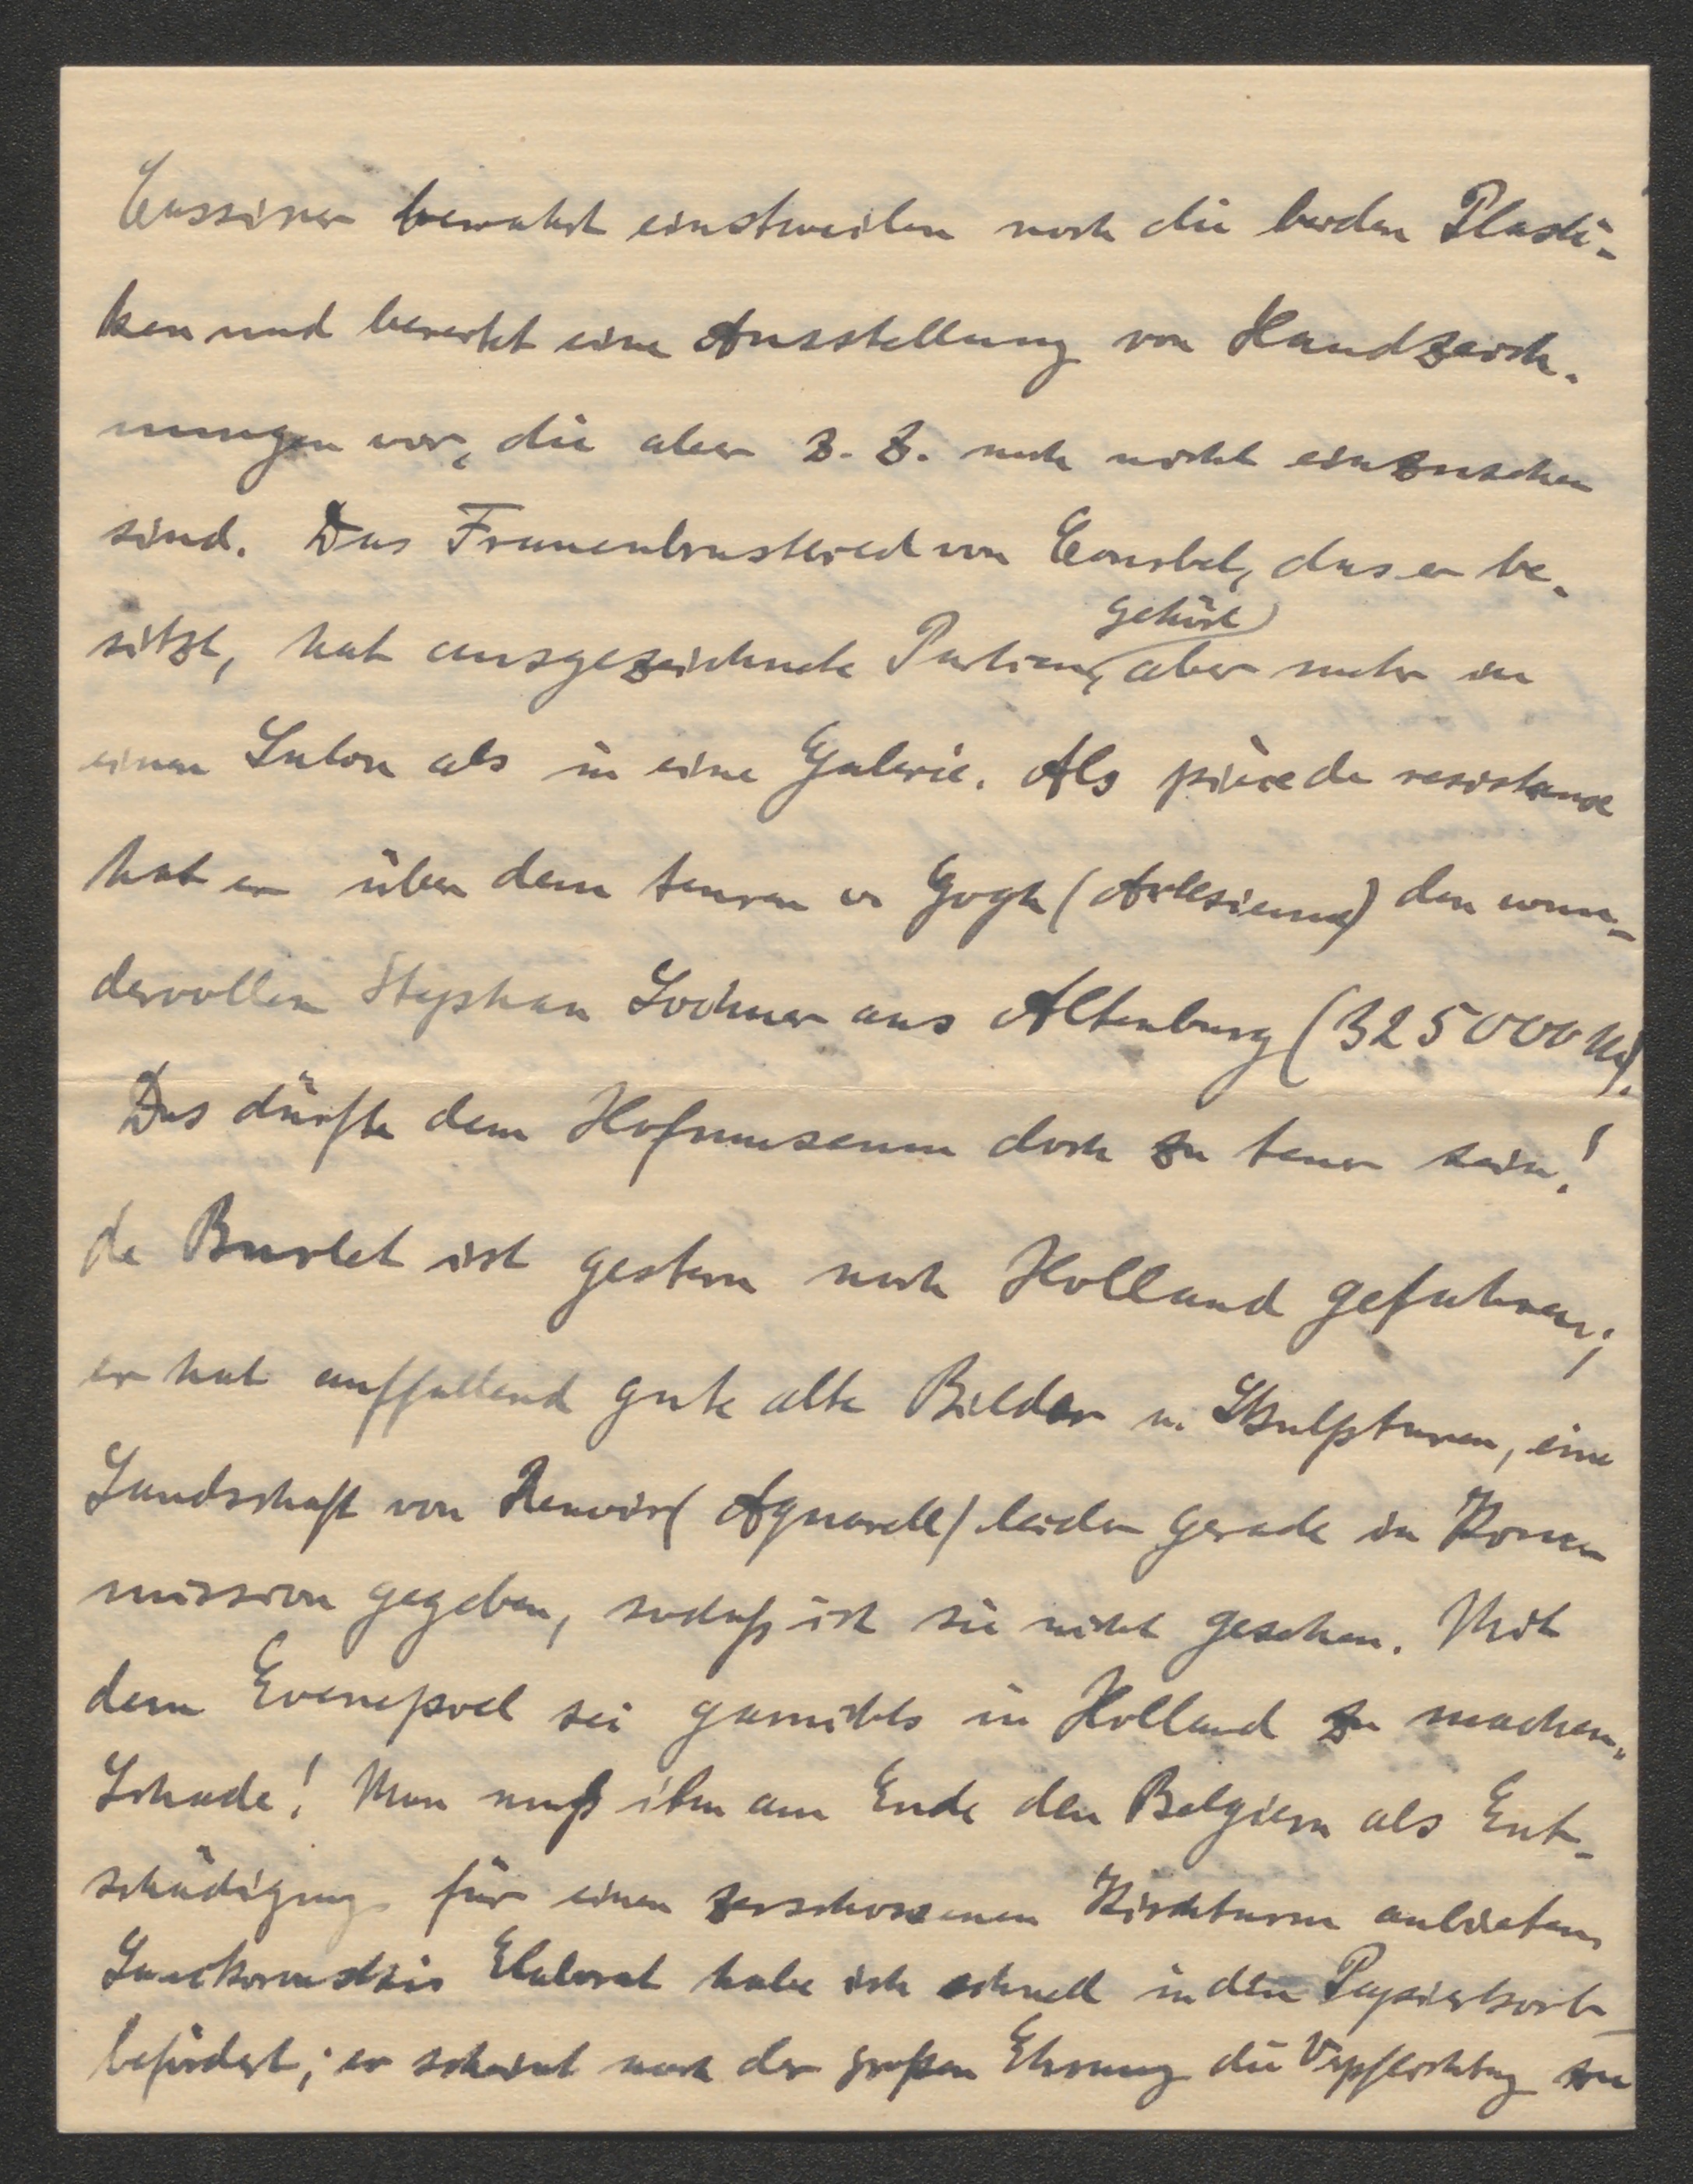 Cassirer bewahrt einstweilen noch die beiden Plasti-
ken und bereitet eine Ausstellung von Handzeich-
nungen vor, die aber z. Z. noch nicht einzusehen
sind. Das Frauenbrustbild von Courbet, das er be-
sitzt, hat ausgezeichnete Partien, gehört aber mehr in
einen Salon als in eine Galerie. Als pièce de resistance
hat er über dem teuren v Gogh (Arlesienne) den wun-
dervollen Stephan Lochner aus Altenburg (325000 M).
Das dürfte dem Hofmuseum doch zu teuer sein!
de Burlet ist gestern nach Holland gefahren;
er hat auffallend gute alte Bilder u. Skulpturen, eine
Landschaft von Renoir (Aquarell) leider gerade in Kom-
mission gegeben, sodaß ich sie nicht gesehen. Mit
dem Evenepoel sei garnichts in Holland zu machen.
Schade! Man muß ihn am Ende den Belgiern als Ent-
schädigung für einen zerschossenen Kirchturm anbieten.
Elaborat habe ich schnell in den Papierkorb
befördert; er scheint nach der großen Ehrung die Verpflichtung zu